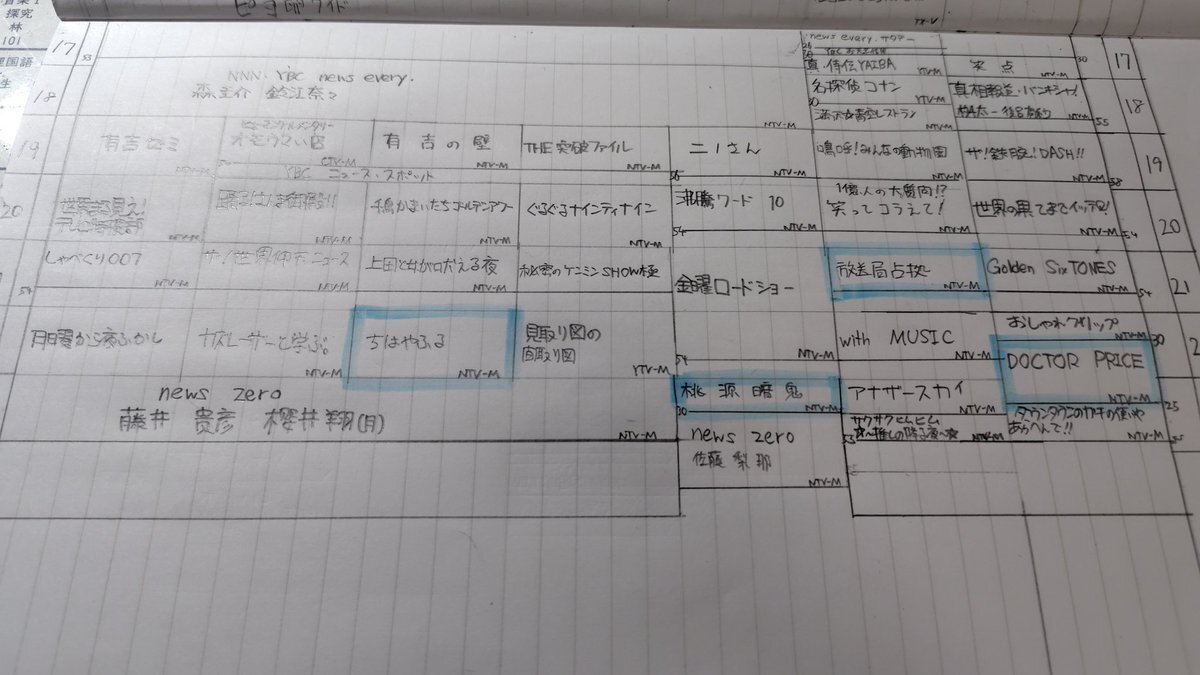 探究
林
101
理国語
生
17
53
news every. サタデー
真・侍伝YAIBA
YTV-M
笑点
NTV-M
30
17
NNN・YBC news every.
森圭介 鈴江奈々
NTV-M
18
名探偵コナン
YTV-M
30
満天☆青空レストラン
NTV-M
真相報道・バンキシャ!
NTV-M
55
18
19
有吉ゼミ
NTV-M
オモウマい店
CTV-M
有吉の壁
NTV-M
THE突破ファイル
NTV-M
ニノさん
NTV-M
嗚呼!みんなの動物園
NTV-M
ザ!鉄腕!DASH!!
NTV-M
58
19
YBC ニュース・スポット
56
20
世界まる見え!
テレビ特捜部
NTV-M
NTV-M
千鳥かまいたちゴールデンアワー
NTV-M
ぐるぐるナインティナイン
NTV-M
沸騰ワード 10
NTV-M
54
1億人の大質問!?
笑ってコラえて!
NTV-M
世界の果てまでイッテQ!
NTV-M
54
20
しゃべくり007
NTV-M
54
ザ!世界仰天ニュース
NTV-M
上田と女が吠える夜
NTV-M
秘密のケンミンSHOW極
YTV-M
金曜ロードショー
NTV-M
54
放送局占拠
NTV-M
Golden SixTONES
NTV-M
54
21
月曜から夜ふかし
NTV-M
ちはやふる
NTV-M
見取り図の
間取り図
YTV-M
with MUSIC
NTV-M
おしゃれクリップ
NTV-M
30
DOCTOR PRICE
NTV-M
25
news zero
藤井 貴彦 櫻井翔(月)
NTV-M
桃源暗鬼
NTV-M
30
アナザースカイ
NTV-M
ダウンタウンのガキの使いや
あらへんで!!
NTV-M
55
news zero
佐藤梨那
NTV-M
サクサクヒムヒム
☆〜推しの降る夜〜☆
NTV-M
55